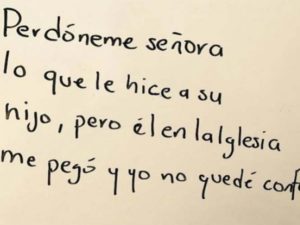 Perdóneme señora
lo que le hice a su
hijo, pero él en la Iglesia
me pegó y yo no quedé